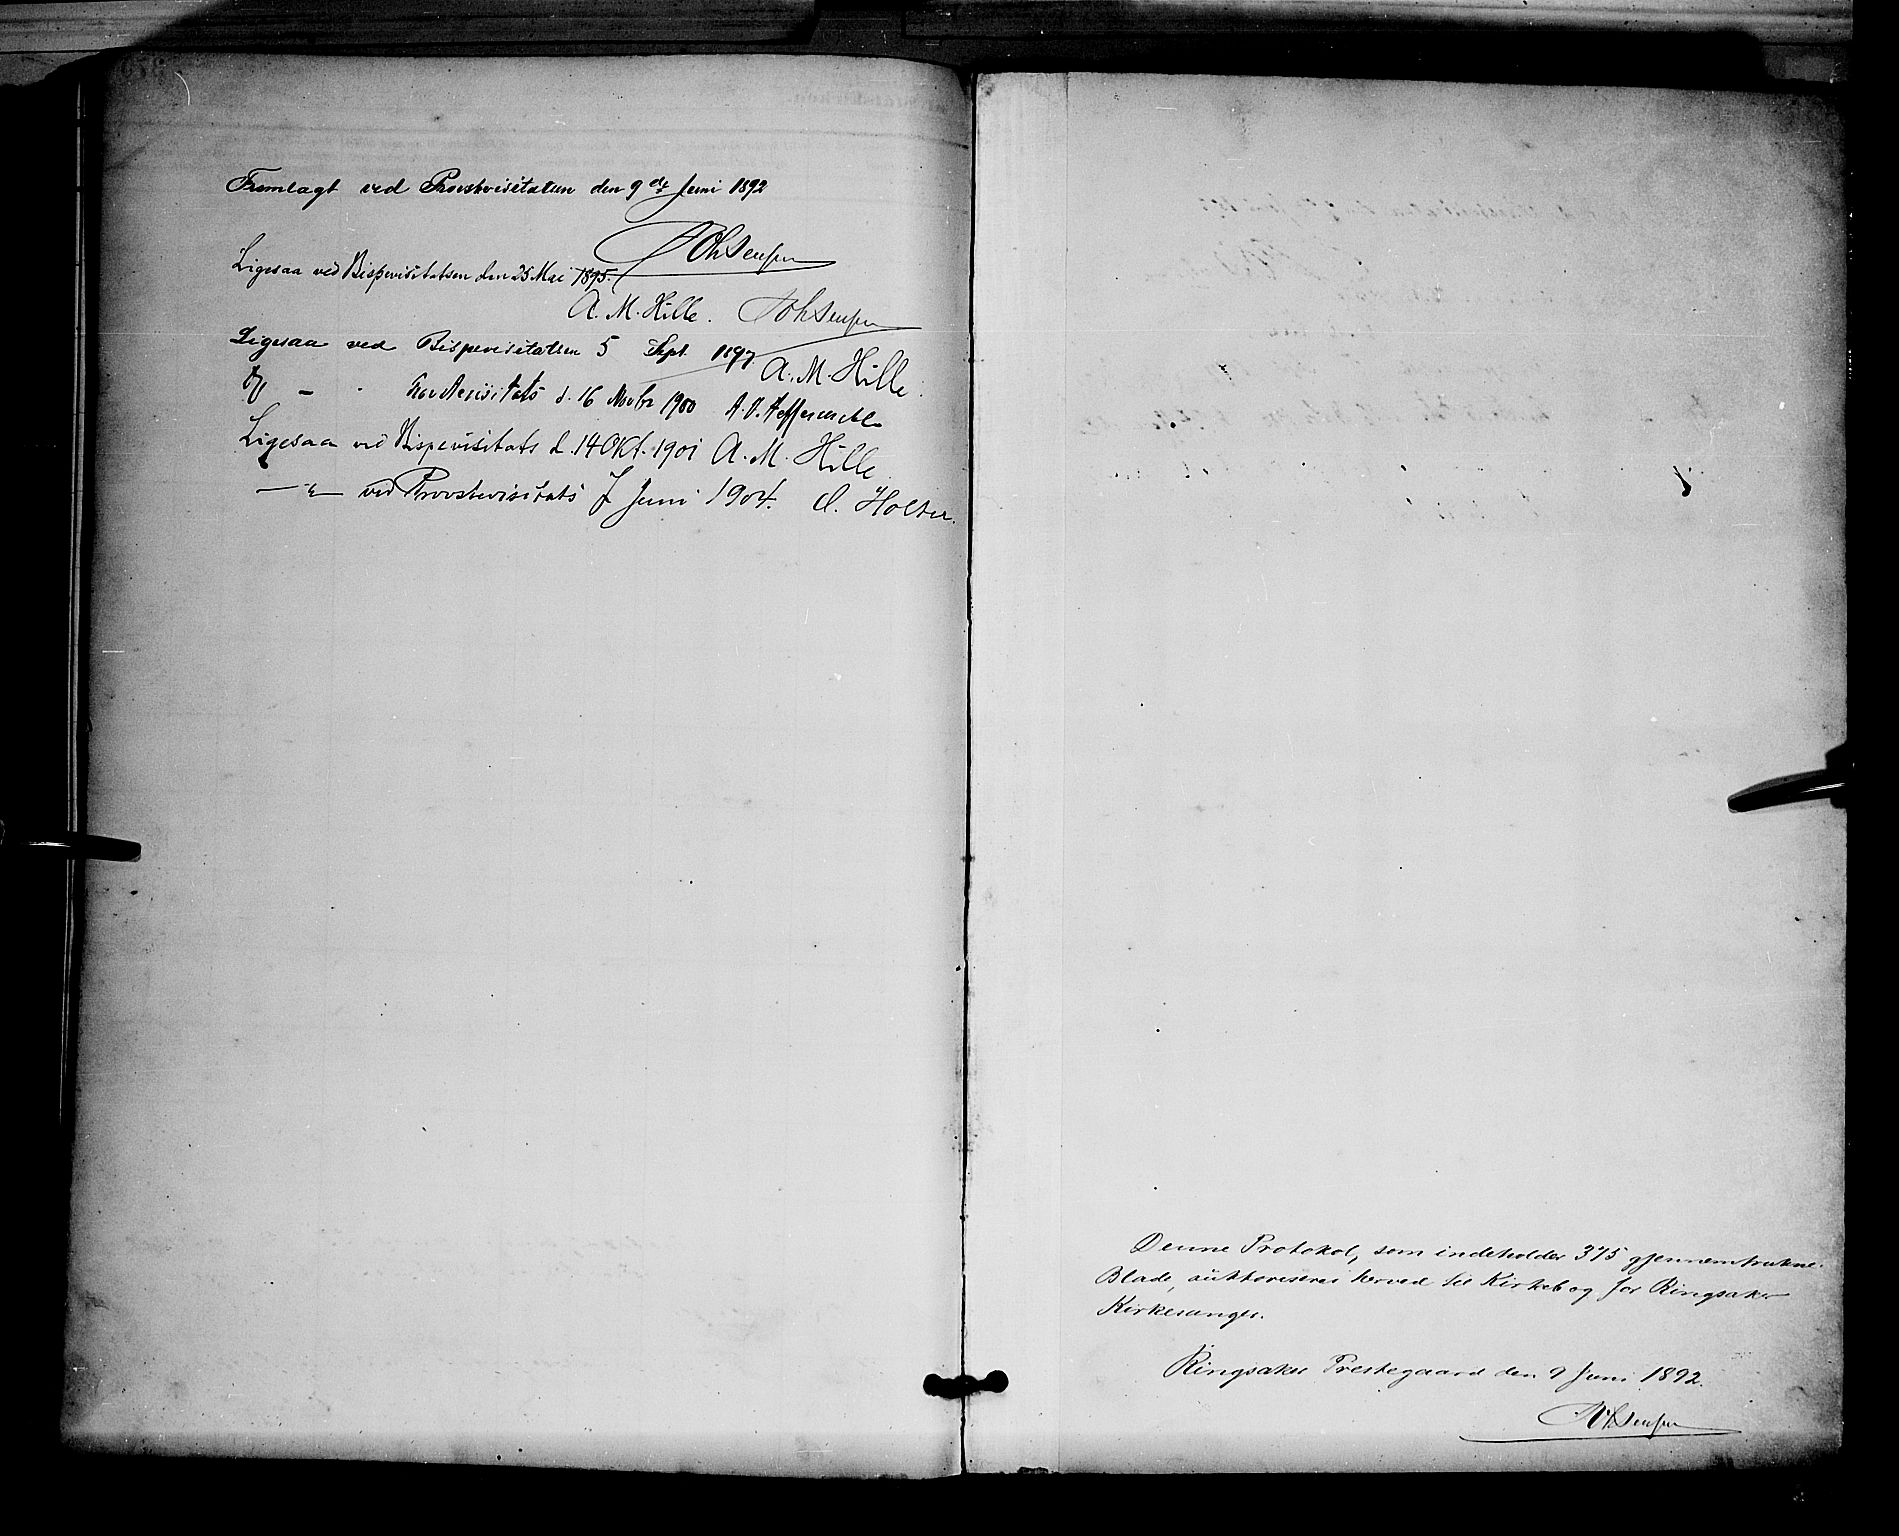 Fremlagt ved Provstevisitatsen den 9de Juni 1892
Ligesaa ved Bispevisitatsen den 25 Mai 1895.
A. M. Hille.
Ligesaa ved Bispevisitatsen 5 Sept. 1897. A. M. Hille.
Og — Provstevisitats d. 16 Novbr 1900
Ligesaa ved Bispevisitats d. 14 Okt. 1901 A. M. Hille
— " — ved Provstevisitats 7 Juni 1904. O. Holter.
Denne Protokol, som indeholder 375 gjennemtrukne
Blade, authoriseres herved til Kirkebog for Ringsaker
Kirkesanger.
Ringsaker Prestegaard den 9 Juni 1892.